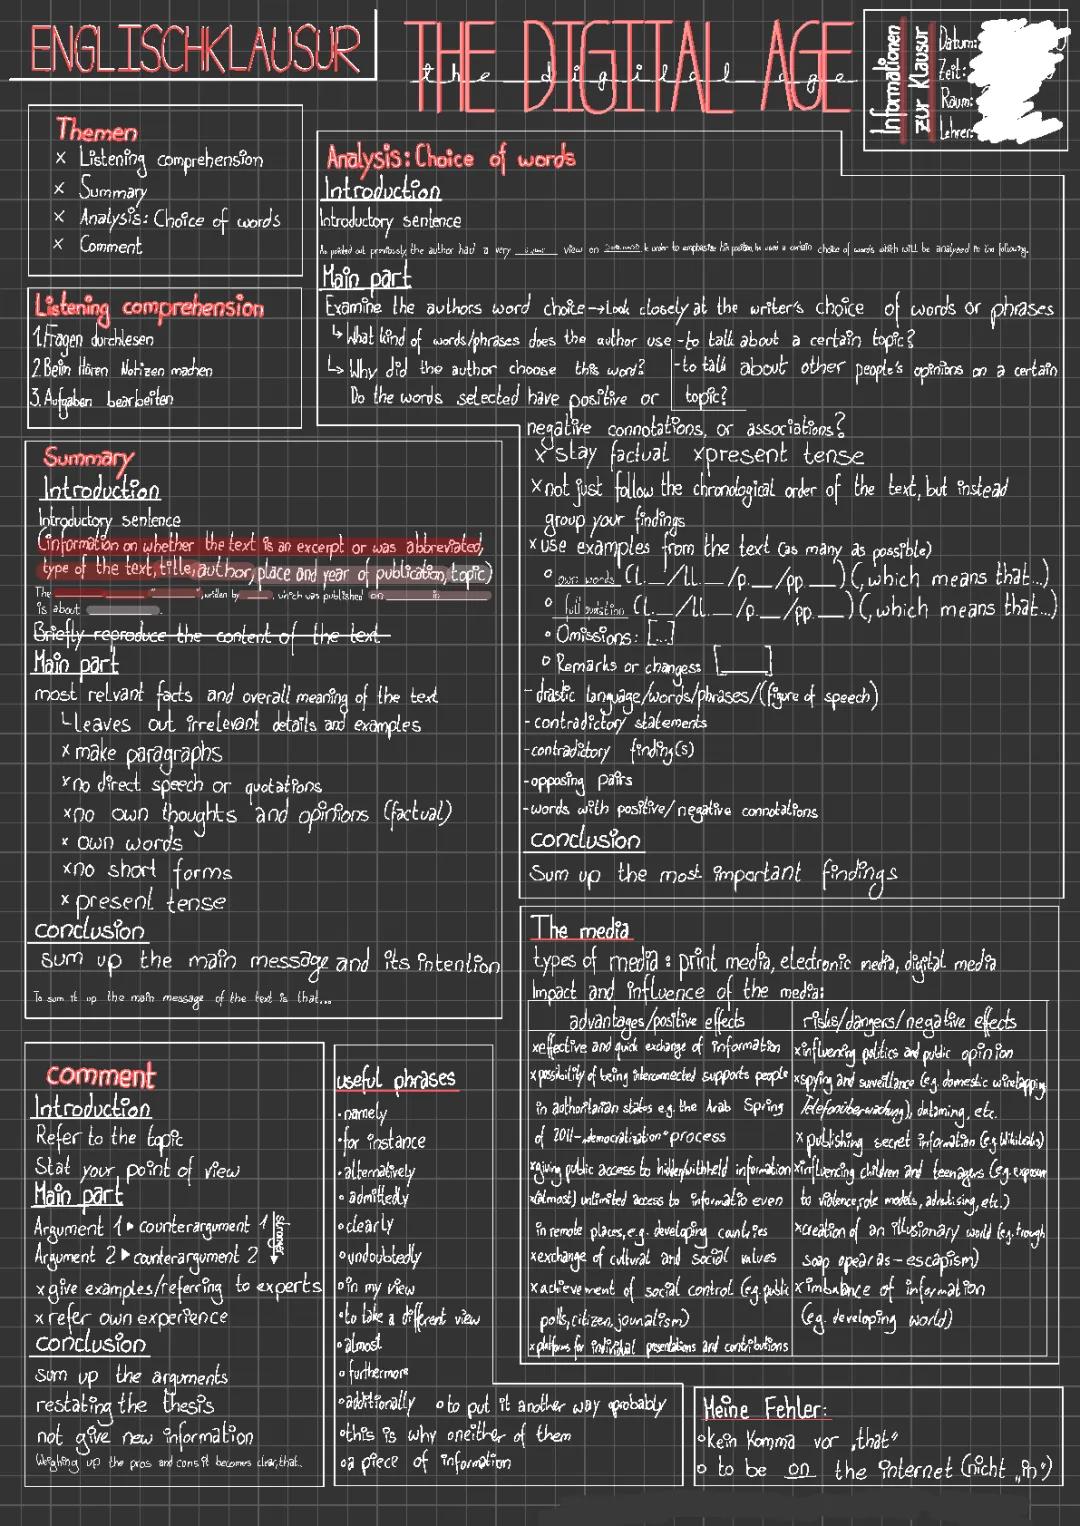 ENGLISCHKLAUSUR
THE DIGITAL AGE
the digital age
Informationen
zur Klausur
Datum:
Zeit:
Raum:
Lehrer:
Themen
x Listening comprehension
x Summary
x Analysis: Choice of words
x Comment
Listening comprehension
1. Fragen durchlesen
2. Beim Hören Notizen machen
3. Aufgaben bearbeiten
Summary
Introduction
Introductory sentence
(information on whether the text is an excerpt or was abbreviated,
type of the text, title, author, place and year of publication, topic)
The ___ "___", written by ___, which was published on ___ in ___
is about ___.
Briefly reproduce the content of the text
Main part
most relvant facts and overall meaning of the text
↳ leaves out irrelevant details and examples
x make paragraphs
x no direct speech or quotations
x no own thoughts and opinions (factual)
x own words
x no short forms
x present tense
conclusion
sum up the main message and its intention
To sum it up the main message of the text is that...
Analysis: Choice of words
Introduction
Introductory sentence
As pointed out previously, the author had a very ___ view on ___ order to emphasize his position, he used a certain choice of words which will be analysed in the following.
Main part
Examine the authors word choice → Look closely at the writer's choice of words or phrases
↳ What kind of words/phrases does the author use - to talk about a certain topic?
↳ Why did the author choose this word?
- to talk about other people's opinions on a certain
topic?
Do the words selected have positive or
negative connotations, or associations?
x stay factual x present tense
x not just follow the chronological order of the text, but instead
group your findings
x use examples from the text (as many as possible)
° own words (l. __/ll. __/p. __/pp. __) (, which means that...)
° full quotation (l. __/ll. __/p. __/pp. __) (, which means that...)
° Omissions: [...]
° Remarks or changes: [____]
- drastic language/words/phrases/(figure of speech)
- contradictory statements
- contradictory finding(s)
- opposing pairs
- words with positive/negative connotations
conclusion
Sum up the most important findings
The media
types of media: print media, electronic media, digital media
Impact and influence of the media:
advantages/positive effects
x effective and quick exchange of information
x possibility of being interconnected supports people
in authoritarian states e.g. the Arab Spring
of 2011 - „democratization" process
x giving public access to hidden/withheld information
x (almost) unlimited access to informatio even
in remote places, e.g. developing countries
x exchange of cultural and social values
x achievement of social control (e.g. public
polls, citizen, journalism)
x platforms for individual presentations and contributions
risks/dangers/negative effects
x influencing politics and public opinion
x spying and surveillance (e.g. domestic wiretapping
Telefonüberwachung), datamng, etc.
x publishing secret information (e.g. Wikileaks)
x influencing children and teenagers (e.g. exposure
to violence, role models, advertising, etc.)
x creation of an illusionary world (e.g. trough
soap operar as - escapism)
x imbalance of information
(e.g. developing world)
comment
Introduction
Refer to the topic
Stat your point of view
Main part
Argument 1 ▸ counterargument 1
Argument 2 ▸ counterargument 2
stronger
x give examples/referring to experts
x refer own experience
conclusion
sum up the arguments
restating the thesis
not give new information
Weighing up the pros and cons it becomes clear, that...
useful phrases
• namely
• for instance
• alternatively
• admittedly
• clearly
• undoubtedly
• in my view
• to take a different view
• almost
• furthermore
• additionally • to put it another way • probably
• this is why • neither of them
• a piece of information
Meine Fehler:
• kein Komma vor „that"
• to be on the internet (nicht „in")